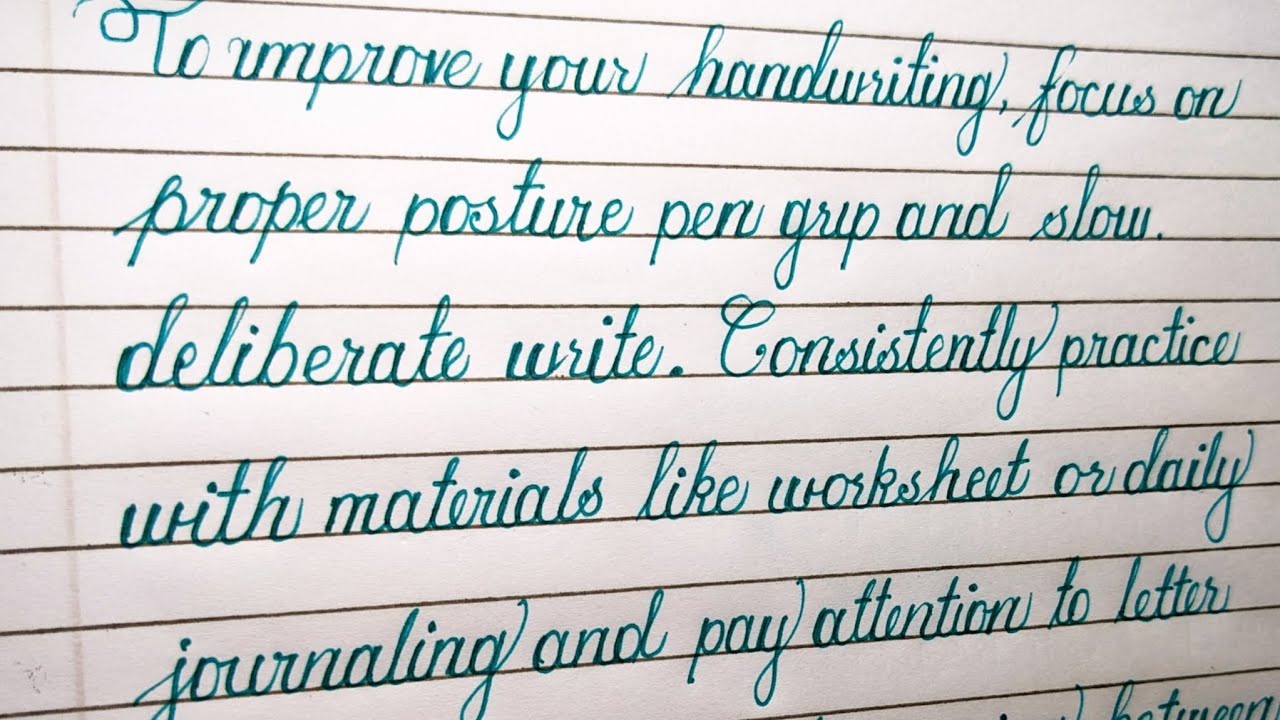 To improve your handwriting, focus on
proper posture pen grip and slow.
deliberate write. Consistently practice
with materials like worksheet or daily
journaling and pay attention to letter
between